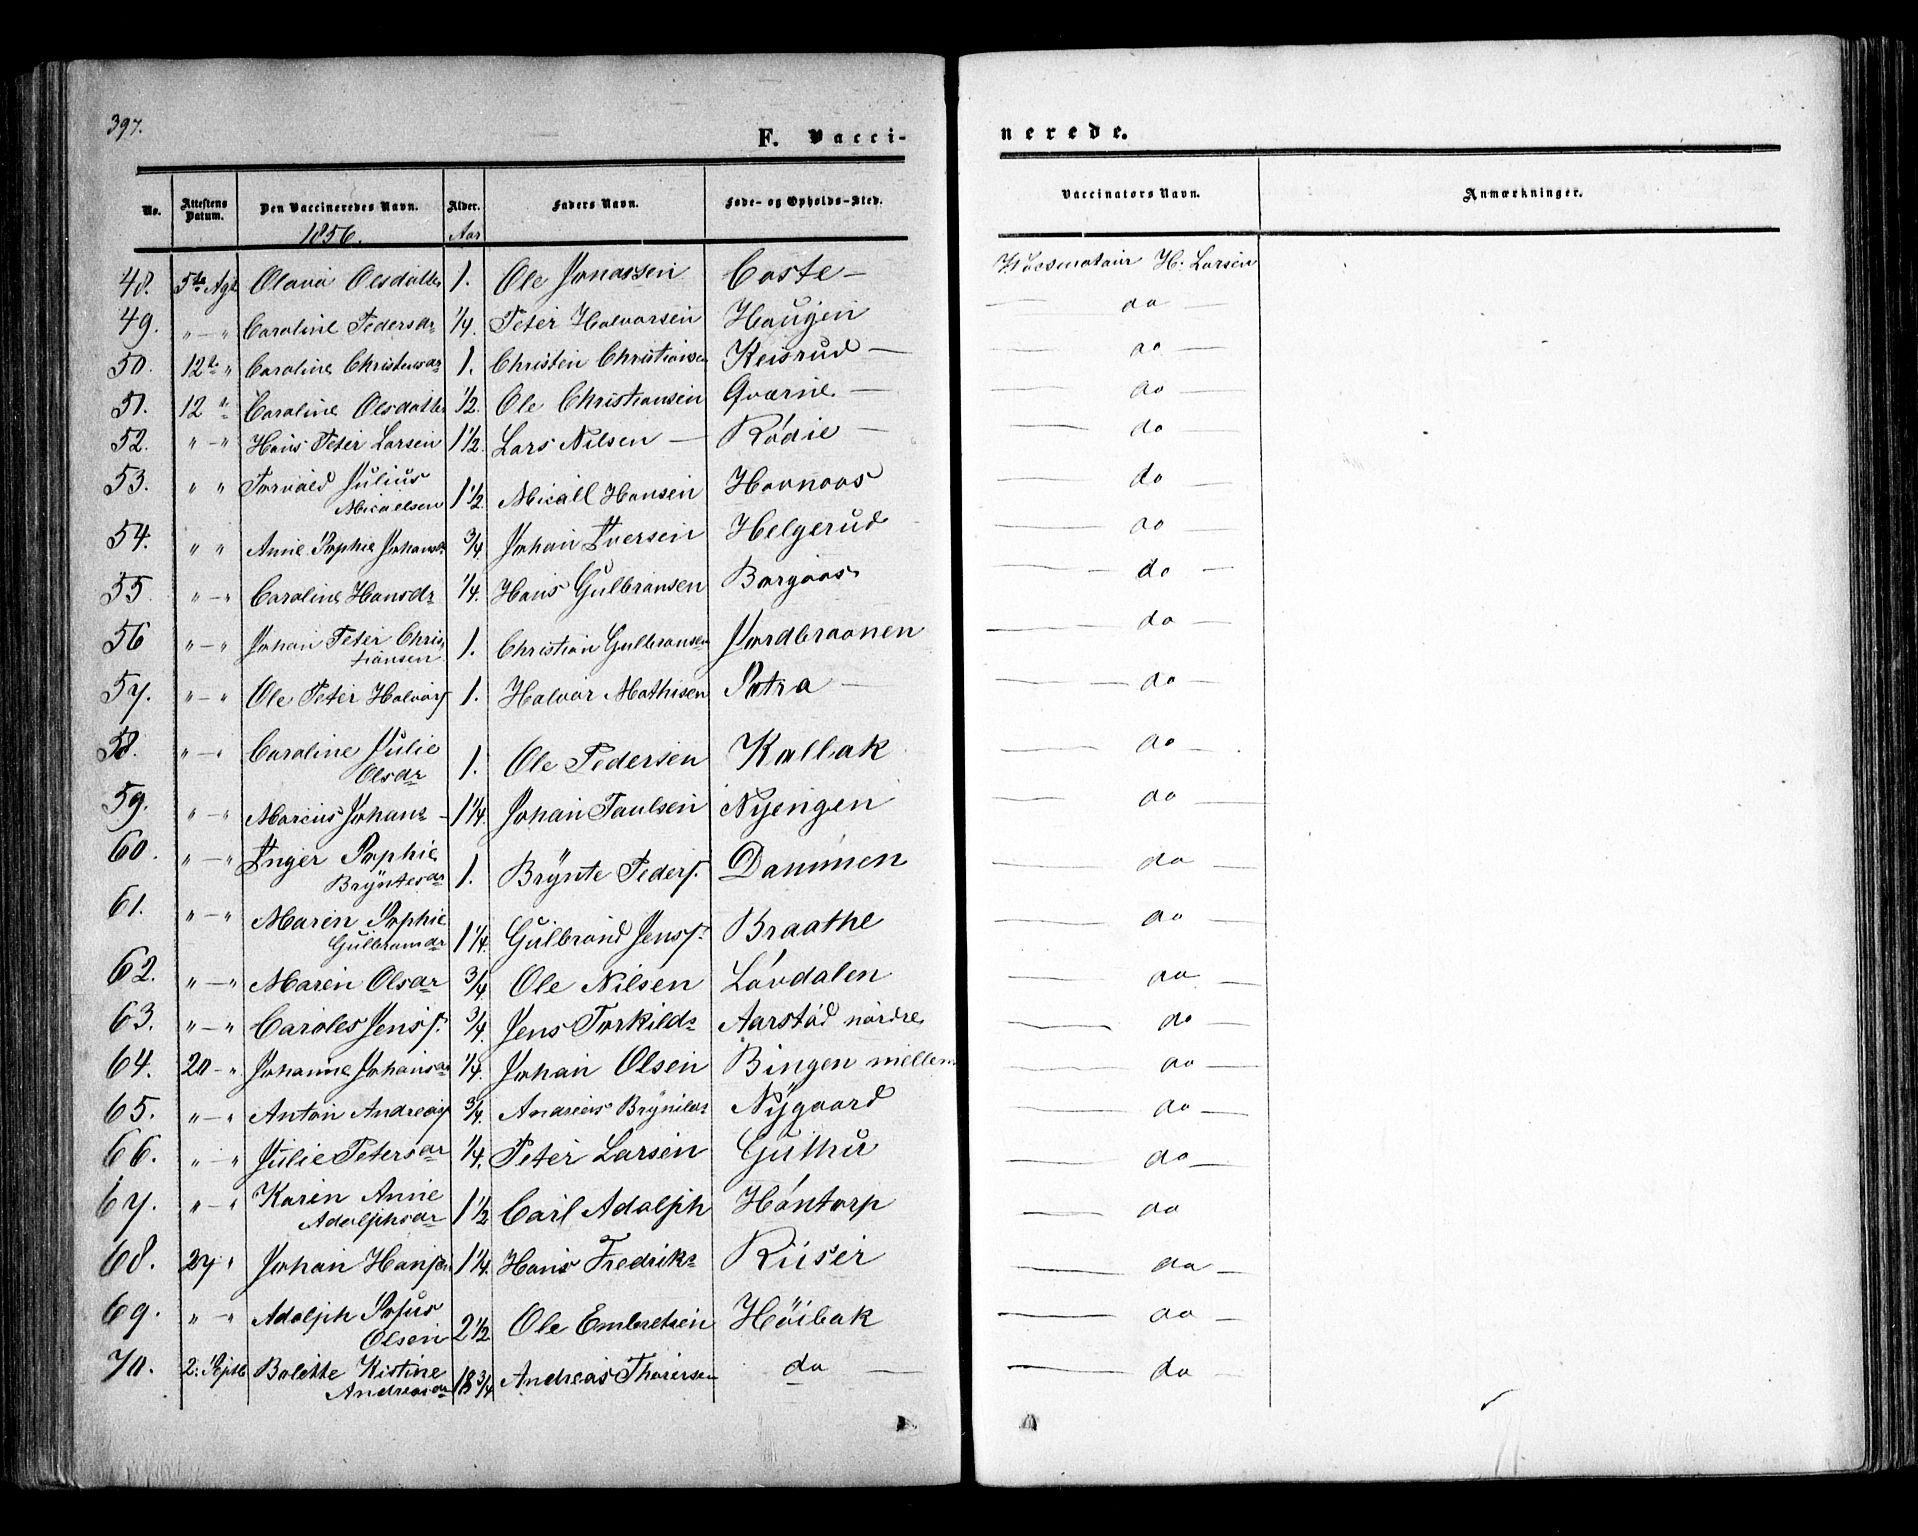 397.
F. Vacci-
nerede.
No. Attestens Datum. Den Vaccineredes Navn. Alder. Faders Navn. Føde- og Opholds-Sted. Vaccinators Navn. Anmærkninger.
1856. Aar
48. 5te Agt Olava Olsdatter 1. Ole Jonassen Coste — H. Larsen
49. " — " Caroline Pedersdr 1/4. Peter Halvorsen Haugen — do —
50. 12te " Caroline Christensdr 1. Christen Christiansen Keisrud — — do —
51. 12 " Caroline Olsdatter 1/2. Ole Christiansen Qværne — — do —
52. " — " Hans Peter Larsen 1 1/2. Lars Nilsen — Rødie — — do —
53. " " Torvald Julius
Micaelsen 1 1/2 Micall Hansen Havnaas — do
54. " " Anne Sophie Johansdr 3/4. Johan Iversen Helgerud — do
55 " — " Caroline Hansdr 1/4. Hans Gulbransen Borgaas — do —
56 " — " Johan Peter Chris
tiansen 1. Christian Gulbransen Jordbraanen — do —
57. " — " Ole Peter Halvors. 1. Halvor Mathisen Sotra — — do —
58. " — " Caroline Julie
Olsdr 1. Ole Pedersen Kallak — do —
59. " — " Marius Johans — 1 1/4. Johan Paulsen Nyengen — do —
60. " — " Inger Sophie
Bryntesdr 1. Brynte Peders. Dammen — do —
61. " — " Maren Sophie
Gulbransdr 1 1/4. Gulbrand Jens. Braathe — do —
62. " — " Maren Olsdr 3/4 Ole Nilsen Løvdalen — do —
63. " — " Caroles Jens. 3/4. Jens Torkilds Aarstød nordre — do —
64. 20 — " Johanne Johansdr 1/4. Johan Olsen Bingen mellem — do —
65. " — " Anton Andreas. 3/4. Andreas Brynilds Nygaard — do —
66. " — " Julie Petersdr 1/4. Peter Larsen Guthu — do —
67. " — " Karen Anne
Adolphsdr 1 1/2 Carl Adolph Hóntorp — do
68. 27 " Johan Hansen 1 1/4. Hans Fredriks Riiser — do —
69. " — " Adolph Josus
Olsen 2 1/2 Ole Embretsen Høibak — do —
70. 2: Septb Bolette Kistine
Andreasdr 18 3/4 Andreas Thorersen do — — do —